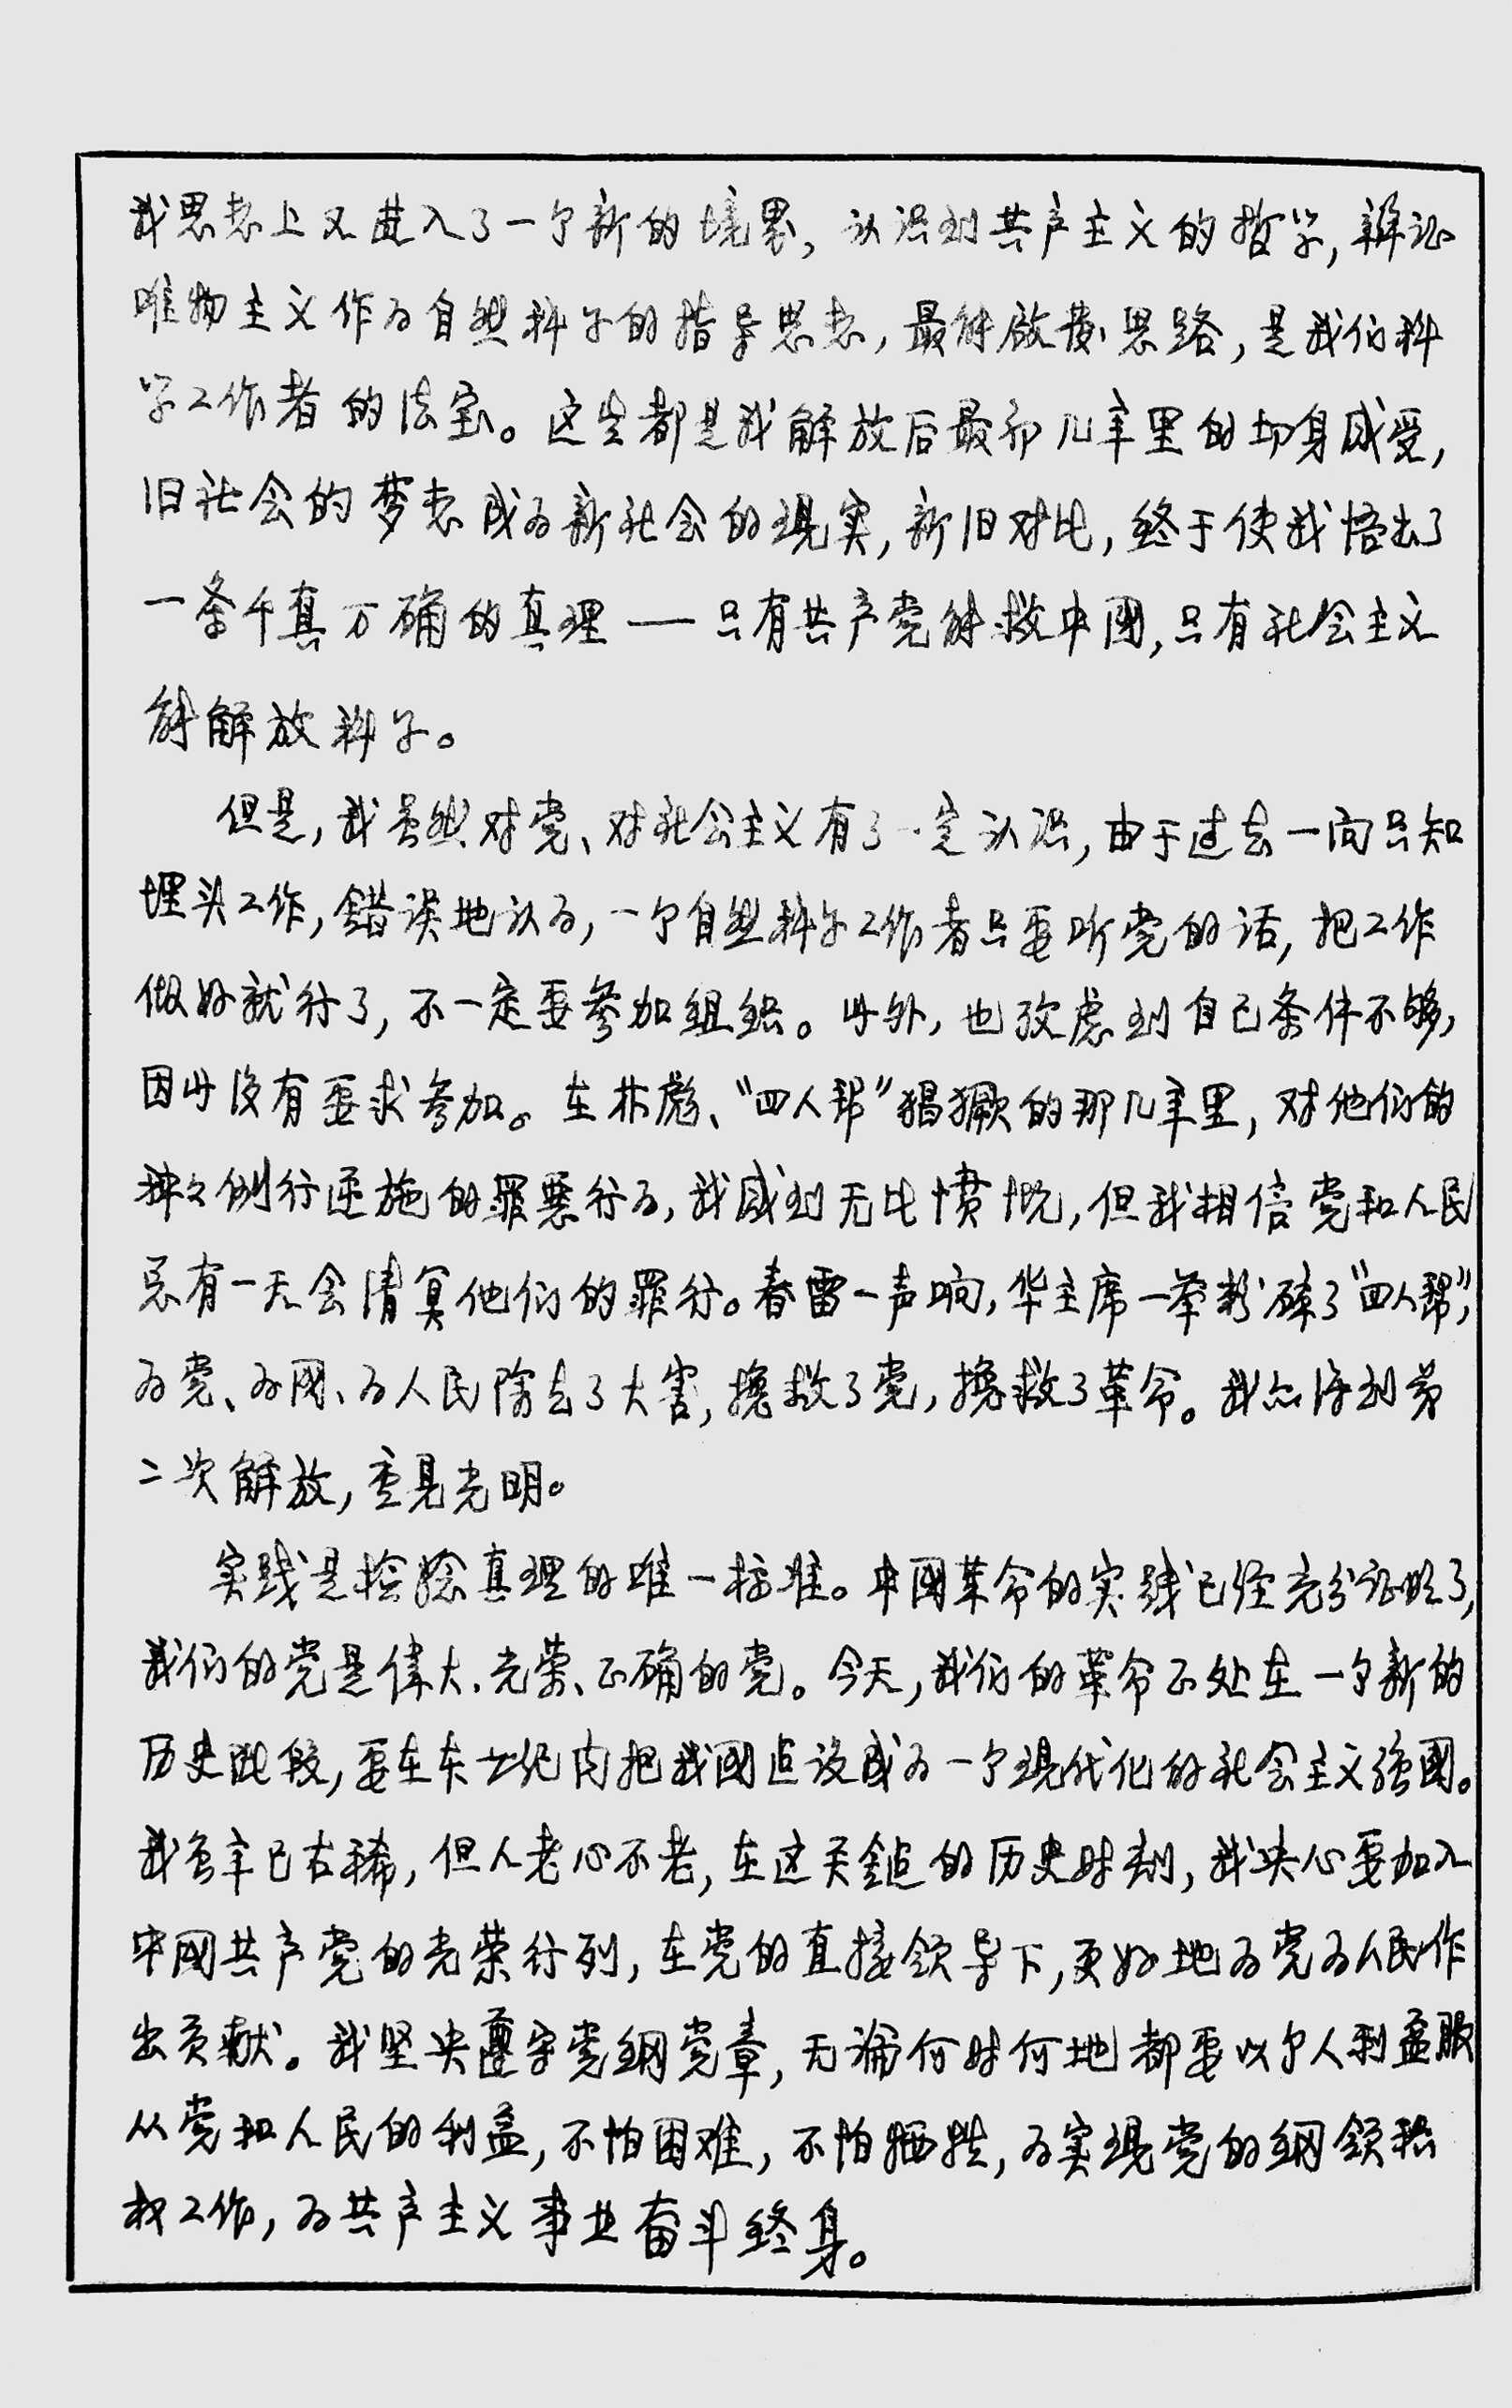 我思想上又进入了一个新的境界，认识到共产主义的哲学，辩证
唯物主义作为自然科学的指导思想，最能启发思路，是我们科
学工作者的法宝。这些都是我解放后最初几年里的切身感受，
旧社会的梦想成为新社会的现实，新旧对比，终于使我悟出了
一条千真万确的真理——只有共产党能救中國，只有社会主义
能解放科学。
但是，我虽然对党、对社会主义有了一定认识，由于过去一向只知
埋头工作，错误地认为，一个自然科学工作者只要听党的话，把工作
做好就行了，不一定要参加组织。此外，也考虑到自己条件不够，
因此没有要求参加。在林彪、“四人帮”猖獗的那几年里，对他们的
种々倒行逆施的罪恶行为，我感到无比愤慨，但我相信党和人民
总有一天会清算他们的罪行。春雷一声响，华主席一举粉碎了“四人帮”，
为党、为國、为人民除去了大害，挽救了党，挽救了革命。我也得到第
二次解放，重见光明。
实践是检验真理的唯一标准。中國革命的实践已经充分证明了，
我们的党是偉大、光荣、正确的党。今天，我们的革命正处在一个新的
历史阶段，要在本世纪内把我國建设成为一个现代化的社会主义强國。
我虽年已古稀，但人老心不老，在这关键的历史时刻，我决心要加入
中國共产党的光荣行列，在党的直接领导下，更好地为党为人民作
出贡献。我坚决遵守党纲党章，无论何时何地都要以个人利益服
从党和人民的利益，不怕困难，不怕牺牲，为实现党的纲领积
极工作，为共产主义事业奋斗终身。